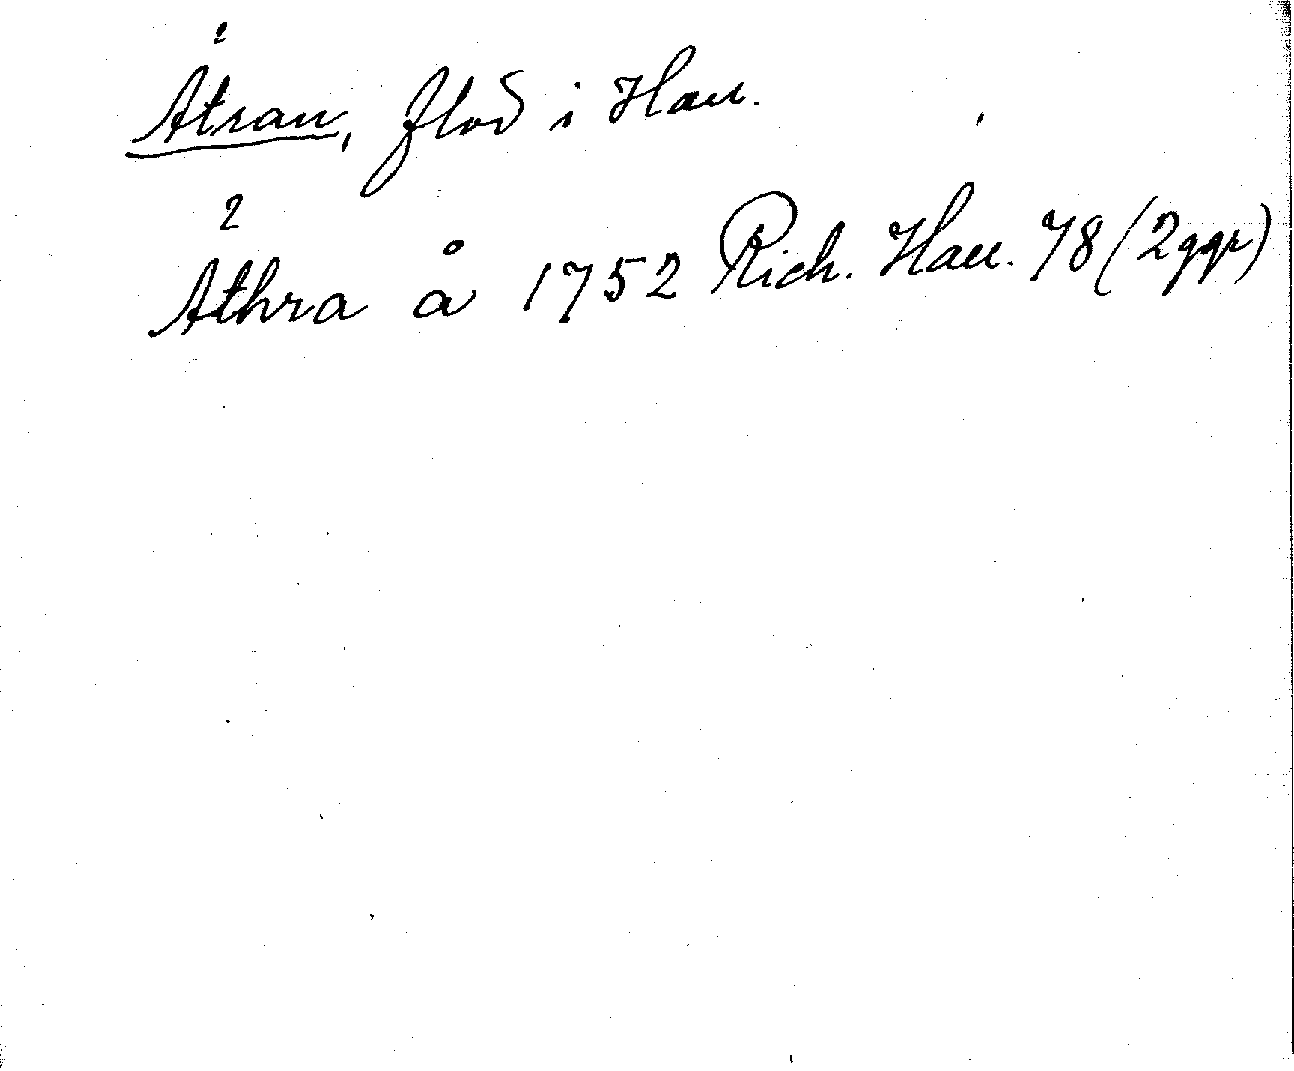 Åtran, flod i Hall.
Åthra å 1752 Rich. Hall. 78 (2 ggr)